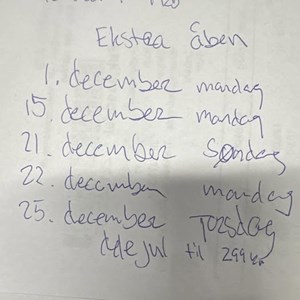 Ekstra åben
1. december mandag
15. december mandag
21. december Søndag
22. december mandag
25. december Torsdag
jul til